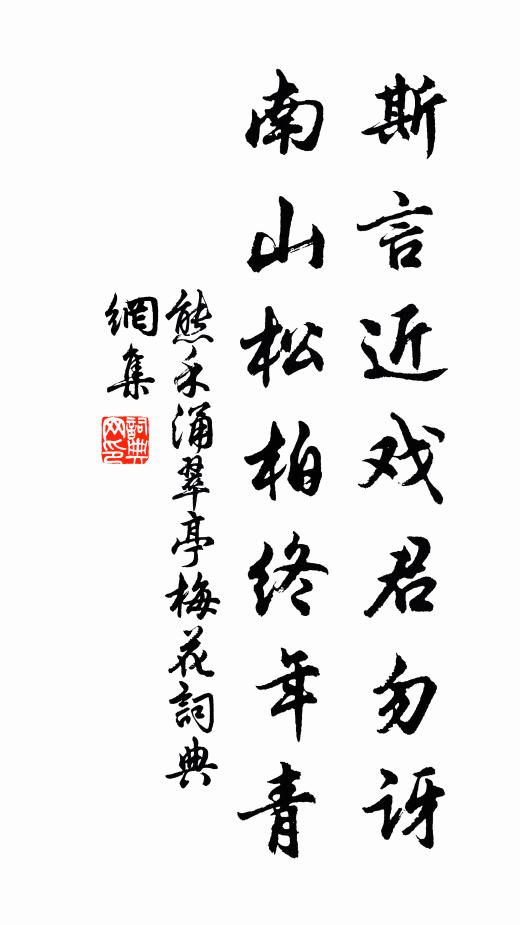 斯言近戏君勿讶
南山松柏终年青
熊禾涌翠亭梅花詞典
網集
詞典网印